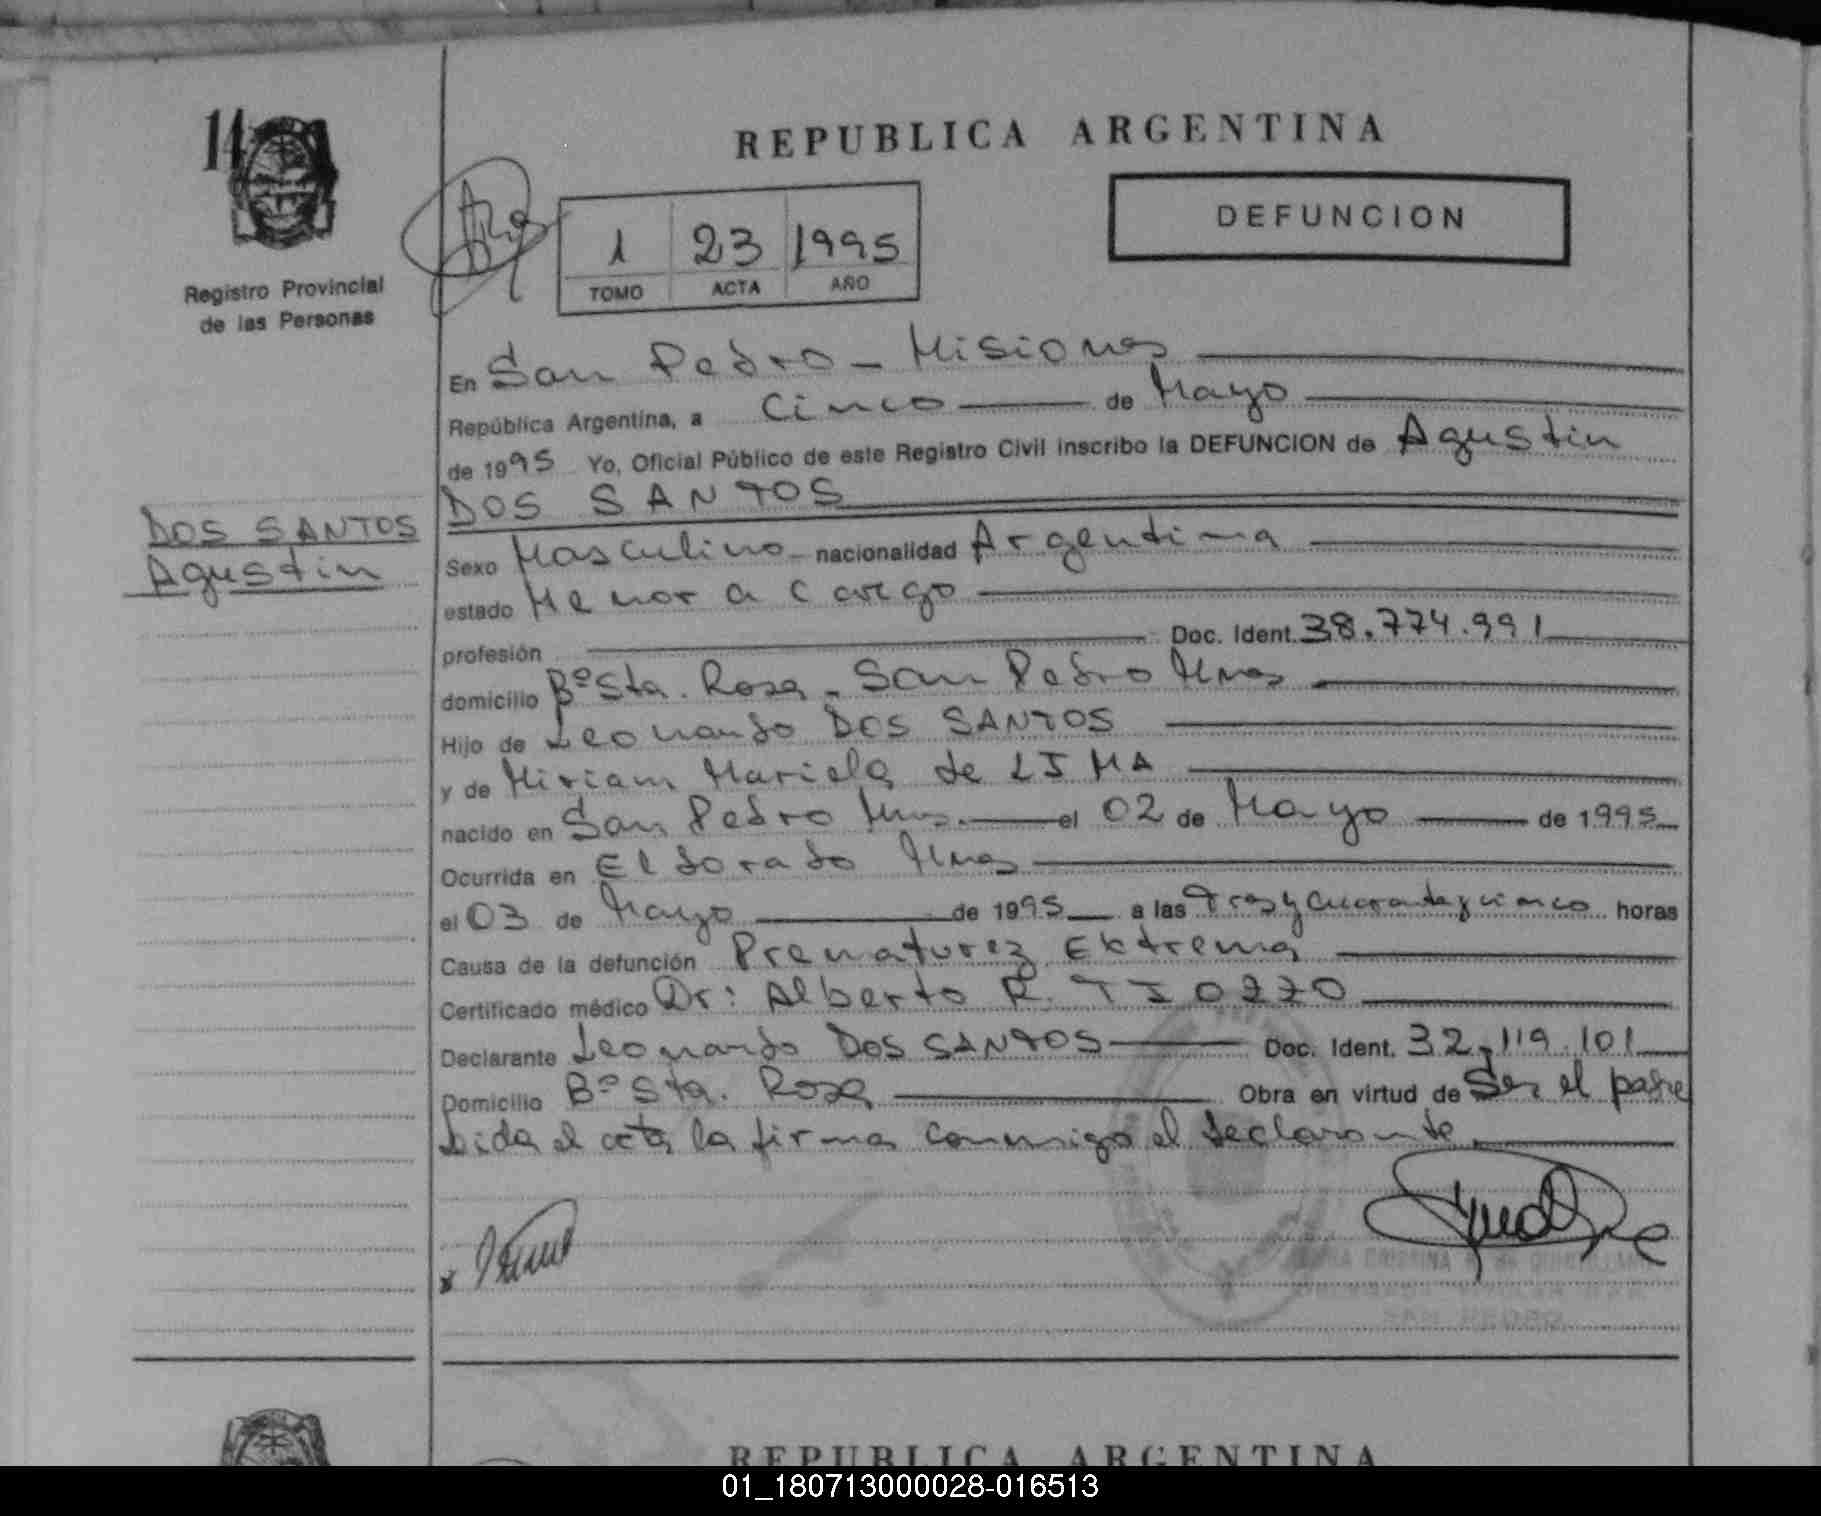 14
REPUBLICA ARGENTINA
DEFUNCION
1 23 1995
TOMO ACTA AÑO
Registro Provincial
de las Personas
En San Pedro - Misiones
República Argentina, a Cinco de Mayo
de 1995 Yo, Oficial Público de este Registro Civil inscribo la DEFUNCION de Agustin
DOS SANTOS
DOS SANTOS
Agustin
Sexo Masculino nacionalidad Argentina
estado Menor a cargo
profesión Doc. Ident. 38.774.991
domicilio Bº Sta. Rosa - San Pedro Mnes
Hijo de Leonardo DOS SANTOS
y de Miriam Mariela de LIMA
nacido en San Pedro Mns. el 02 de Mayo de 1995
Ocurrida en Eldorado Mnes
el 03 de Mayo de 1995 a las Tres y cuarenta y cinco horas
Causa de la defunción Prematurez Extrema
Certificado médico Dr: Alberto R.
Declarante Leonardo DOS SANTOS Doc. Ident. 32.119.101
Domicilio Bº Sta. Rosa Obra en virtud de Ser el padre
Leida el acta la firma conmigo el declarante
REPUBLICA ARGENTINA
01_180713000028-016513